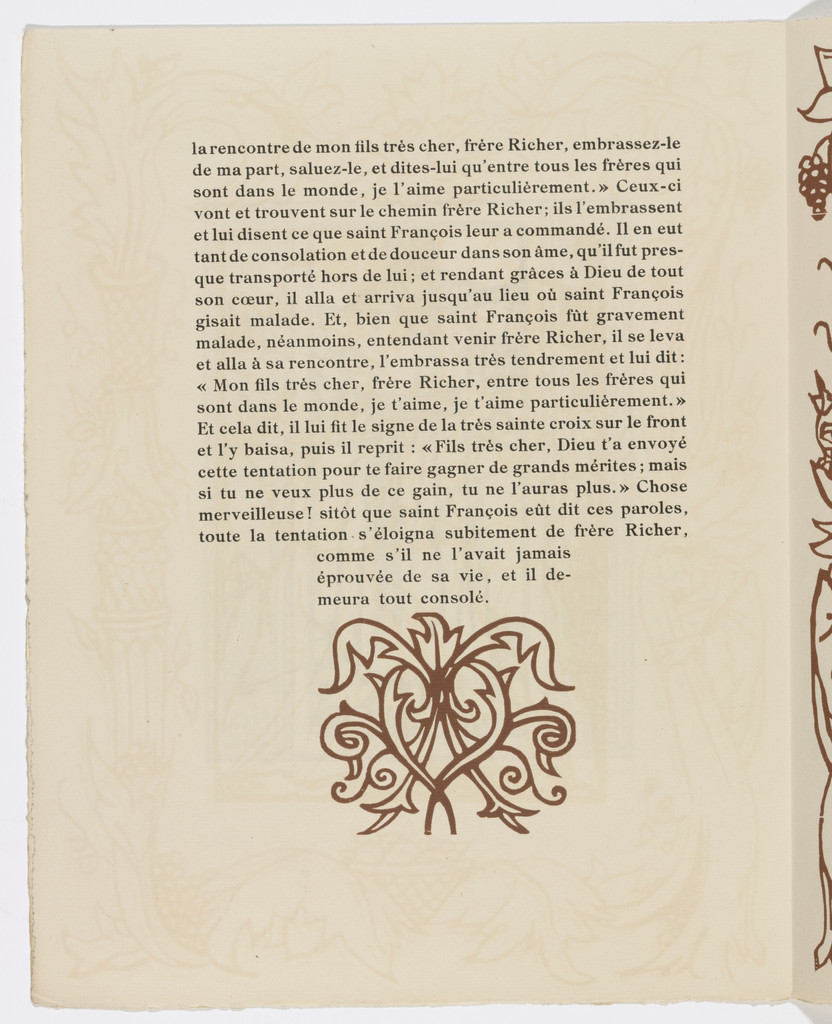 la rencontre de mon fils très cher, frère Richer, embrassez-le
de ma part, saluez-le, et dites-lui qu'entre tous les frères qui
sont dans le monde, je l'aime particulièrement. » Ceux-ci
vont et trouvent sur le chemin frère Richer; ils l'embrassent
et lui disent ce que saint François leur a commandé. Il en eut
tant de consolation et de douceur dans son âme, qu'il fut pres-
que transporté hors de lui ; et rendant grâces à Dieu de tout
son cœur, il alla et arriva jusqu'au lieu où saint François
gisait malade. Et, bien que saint François fût gravement
malade, néanmoins, entendant venir frère Richer, il se leva
et alla à sa rencontre, l'embrassa très tendrement et lui dit :
« Mon fils très cher, frère Richer, entre tous les frères qui
sont dans le monde, je t'aime, je t'aime particulièrement. »
Et cela dit, il lui fit le signe de la très sainte croix sur le front
et l'y baisa, puis il reprit : « Fils très cher, Dieu t'a envoyé
cette tentation pour te faire gagner de grands mérites ; mais
si tu ne veux plus de ce gain, tu ne l'auras plus. » Chose
merveilleuse ! sitôt que saint François eût dit ces paroles,
toute la tentation s'éloigna subitement de frère Richer,
comme s'il ne l'avait jamais
éprouvée de sa vie, et il de-
meura tout consolé.